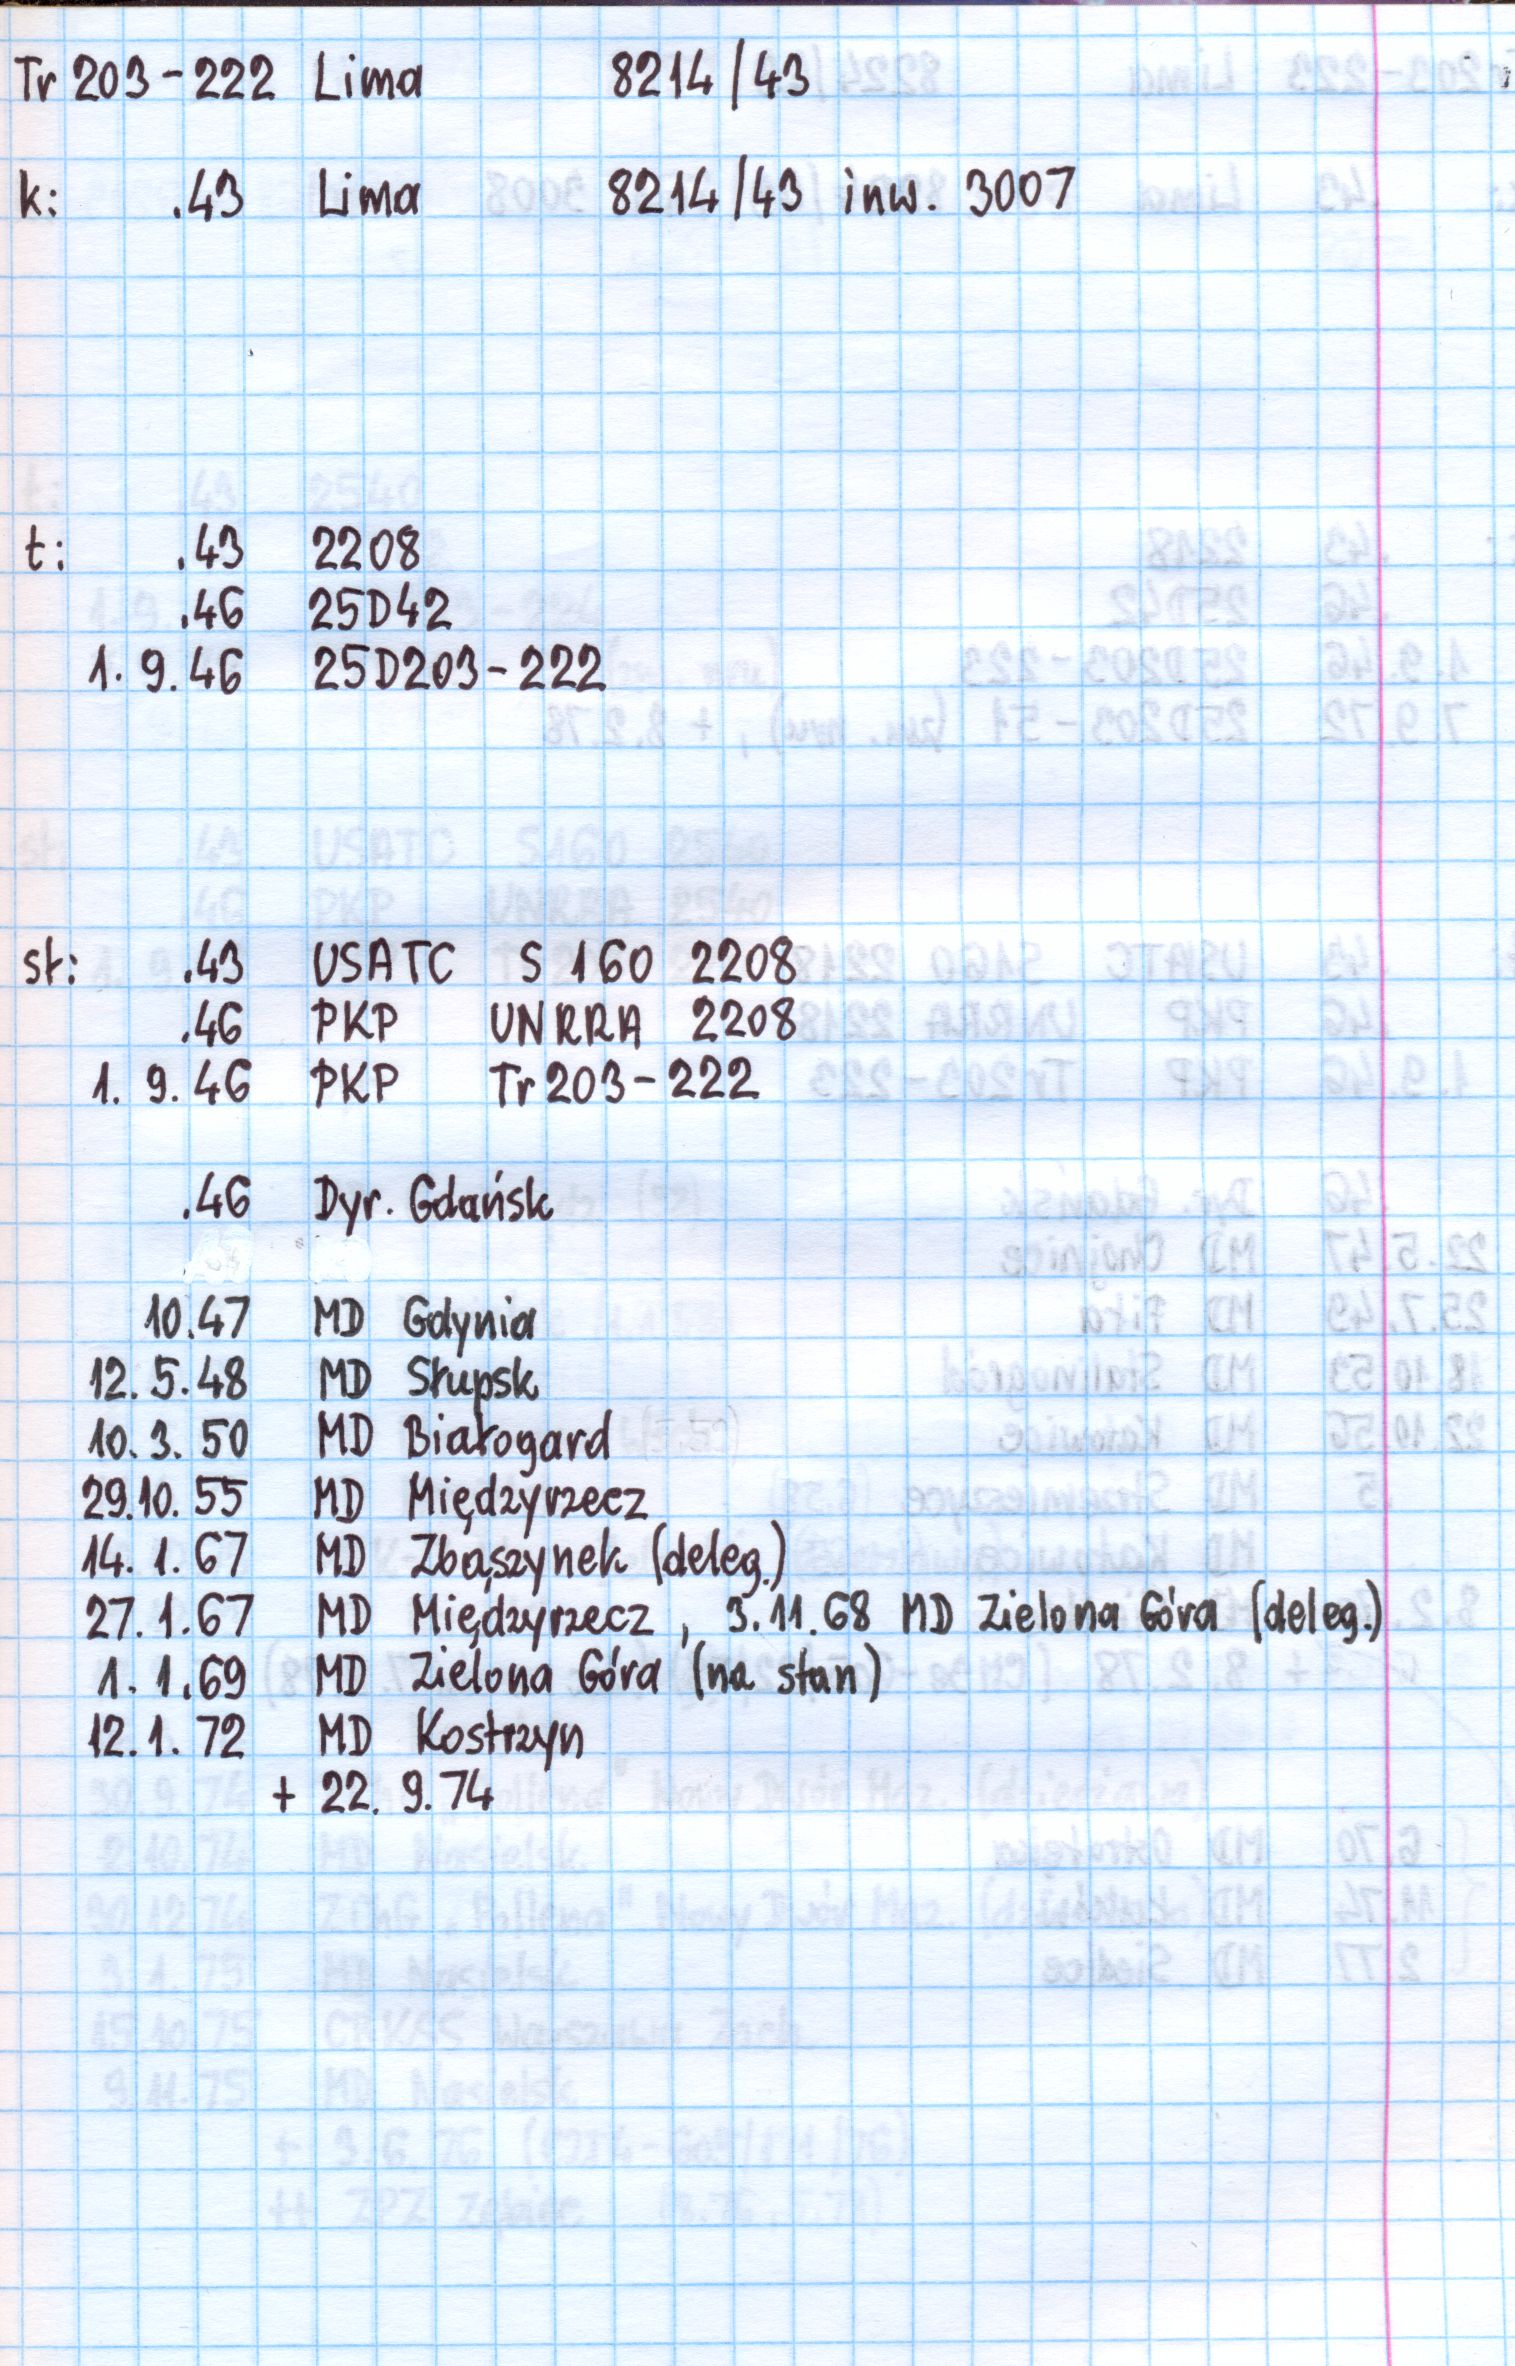 Tr 203-222 Lima 8214/43
k: .43 Lima 8214/43 inw. 3007
t: .43 2208
.46 25D42
1. 9. 46 25D203-222
st: .43 USATC S 160 2208
.46 PKP UNRRA 2208
1. 9. 46 PKP Tr 203-222
.46 Dyr. Gdańsk
10.47 MD Gdynia
12. 5. 48 MD Słupsk
10. 3. 50 MD Białogard
29.10. 55 MD Międzyrzecz
14. 1. 67 MD Zbąszynek (deleg.)
27. 1. 67 MD Międzyrzecz, 3.11.68 MD Zielona Góra (deleg.)
1. 1. 69 MD Zielona Góra (na stan)
12. 1. 72 MD Kostrzyn
+ 22. 9. 74